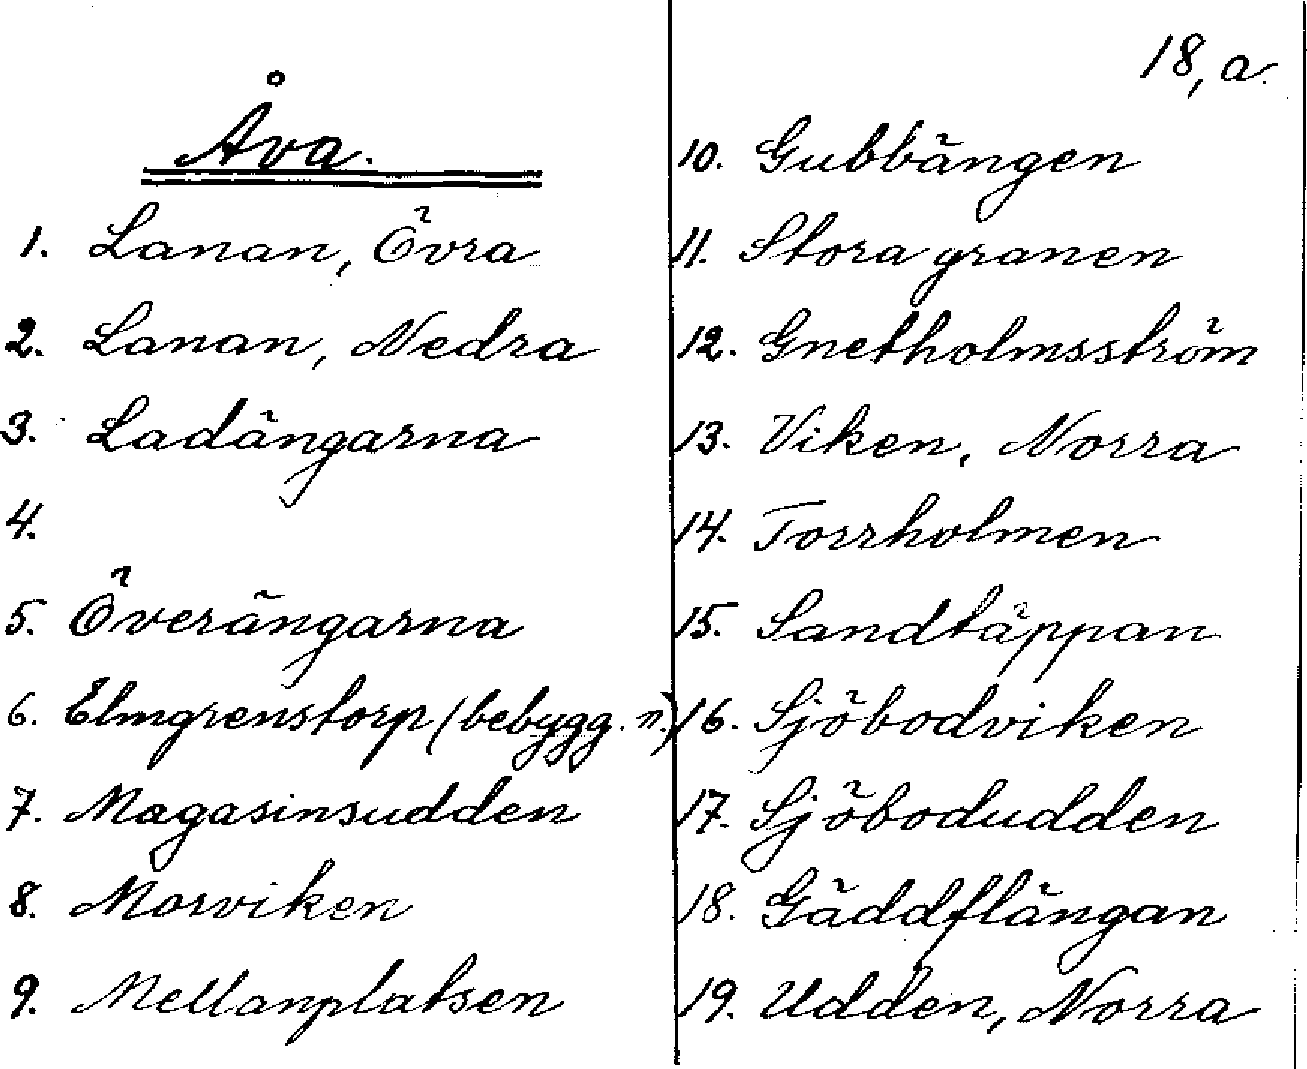 18, a.
Åva.
1. Lanan, Övra
2. Lanan, Nedra
3. Ladängarna
4.
5. Överängarna
6. Elmgrenstorp (bebygg. n.)
7. Magasinsudden
8. Morviken
9. Mellanplatsen
10. Gubbängen
11. Stora granen
12. Gnetholmsström
13. Viken, Norra
14. Torrholmen
15. Sandtäppan
16. Sjöbodviken
17. Sjöbodudden
18. Gäddflängan
19. Udden, Norra